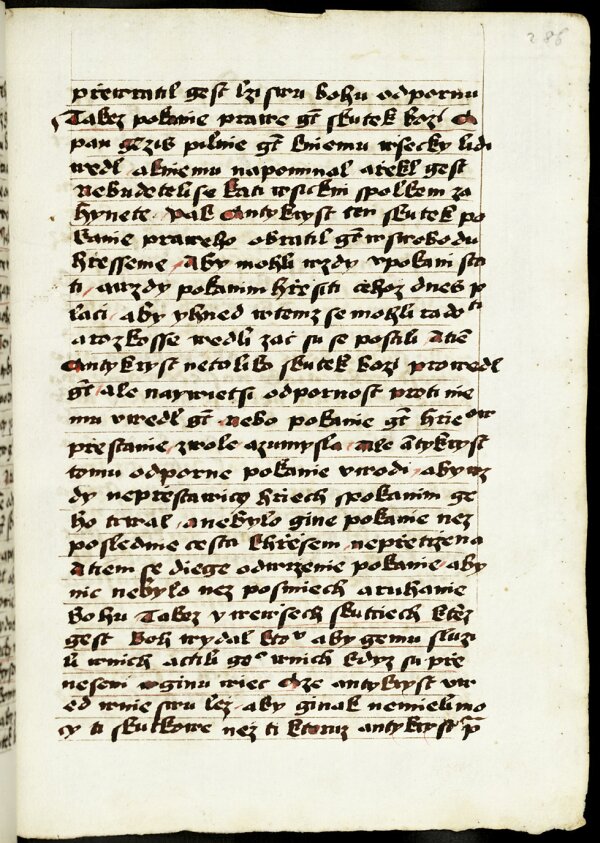 286
přewratil gest lzi swu bohu odpornu
Takez pokanie prawe gt skutek bozi O
pan gezis pilnie gt kniemu wsecky lidi
wedl akniemu napominal arzekl gest
Nebudeteli se kati wsickni spolkem za
hynete Pak Antykryst ten skutek po
kanie praweho obratil gt wswobodu
hrzessenie Aby mohli wzdy vpokani sta
ti awzdy pokanim hrzesiti cehoz dnes p
laci aby yhned wtemz se mohli rado ti
arozkosse wedli zac su se postili Atie
Antykryst netoliko skutek bozi prowedl
gt ale naywietsi odpornost proti nie
mu vwedl gt Nebo pokanie gt hrie ow
przestanie zwole azumysla Ale antykryst
tomu odporne pokanie vwodi abywz
dy neprzestawicy hrziech spokanim ge
ho trwal anebylo gine pokanie nez
poslednie cesta khrzesem neprzetrzena
Atiem se diege odwrzenie pokanie aby
nic nebylo nez posmiech aruhanie
bohu Takez ywewsech skutciech ktez
gest Boh wydal kto aby gemu sluzi
li wnich actili go wnich kdyz su prze
neseni oginu wiec Oze antykryst vw
ed wnie swu lez aby ginak nemieli mo
cy ti skutkowe nez ti ktoruz antykryst p